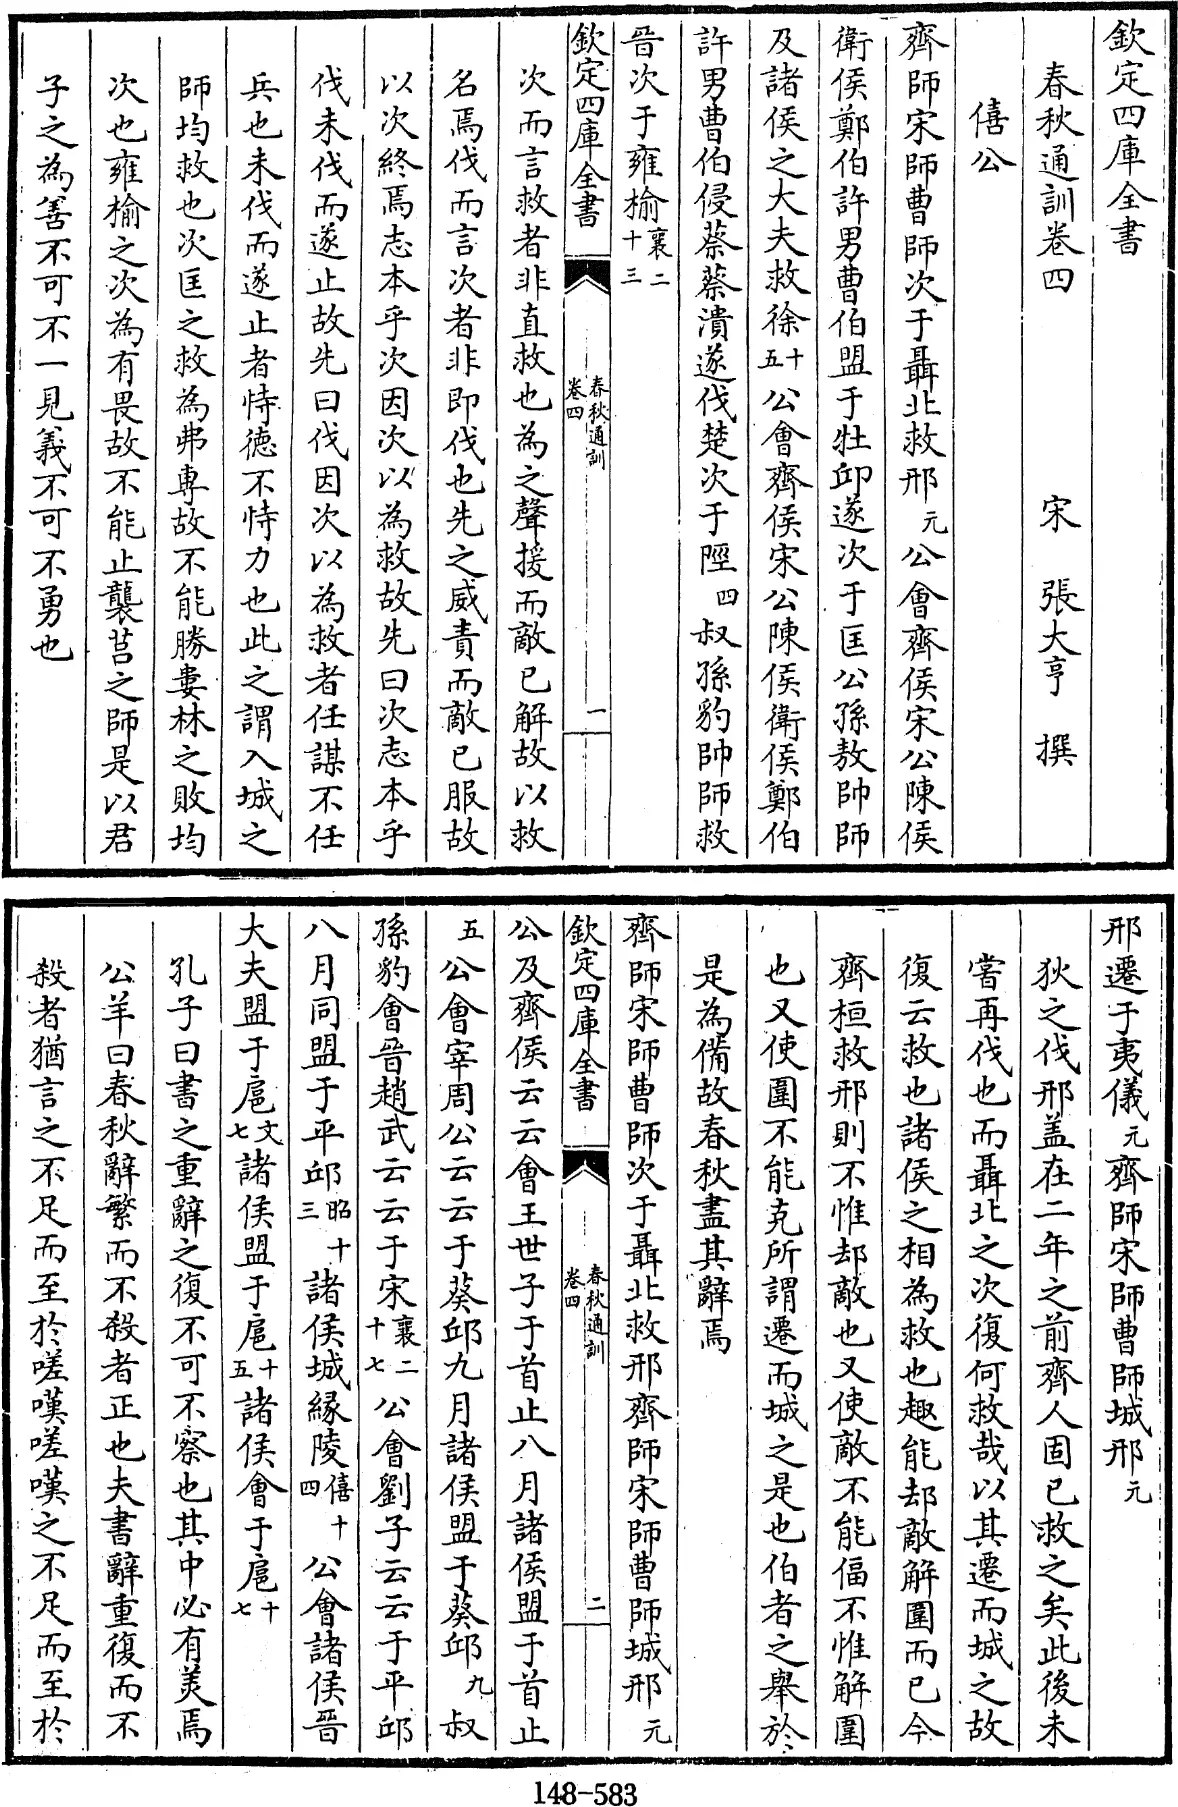 欽定四庫全書
春秋通訓卷四 宋 張大亨 撰
僖公
齊師宋師曹師次于聶北救邢元公會齊侯宋公陳侯
衛侯鄭伯許男曹伯盟于牡邱遂次于匡公孫敖帥師
及諸侯之大夫救徐十五公會齊侯宋公陳侯衛侯鄭伯
許男曹伯侵蔡蔡潰遂伐楚次于陘四叔孫豹帥師救
晉次于雍榆襄二十三
欽定四庫全書 春秋通訓卷四 一
次而言救者非直救也為之聲援而敵已解故以救
名焉伐而言次者非即伐也先之威責而敵已服故
以次終焉志本乎次因次以為救故先曰次志本乎
伐未伐而遂止故先曰伐因次以為救者任謀不任
兵也未伐而遂止者恃德不恃力也此之謂入城之
師均救也次匡之救為弗專故不能勝婁林之敗均
次也雍榆之次為有畏故不能止襲莒之師是以君
子之為善不可不一見義不可不勇也
邢遷于夷儀元齊師宋師曹師城邢元
狄之伐邢盖在二年之前齊人固已救之矣此後未
嘗再伐也而聶北之次復何救哉以其遷而城之故
復云救也諸侯之相為救也趣能却敵解圍而已今
齊桓救邢則不惟却敵也又使敵不能偪不惟解圍
也又使圍不能克所謂遷而城之是也伯者之舉於
是為備故春秋盡其辭焉
齊師宋師曹師次于聶北救邢齊師宋師曹師城邢元
欽定四庫全書 春秋通訓卷四 二
公及齊侯云云會王世子于首止八月諸侯盟于首止
五公會宰周公云云于葵邱九月諸侯盟于葵邱九叔
孫豹會晉趙武云云于宋襄二十七公會劉子云云于平邱
八月同盟于平邱昭十三諸侯城緣陵僖十四公會諸侯晉
大夫盟于扈文七諸侯盟于扈十五諸侯會于扈十七
孔子曰書之重辭之復不可不察也其中必有美焉
公羊曰春秋辭繁而不殺者正也夫書辭重復而不
殺者猶言之不足而至於嗟嘆嗟嘆之不足而至於
148-583